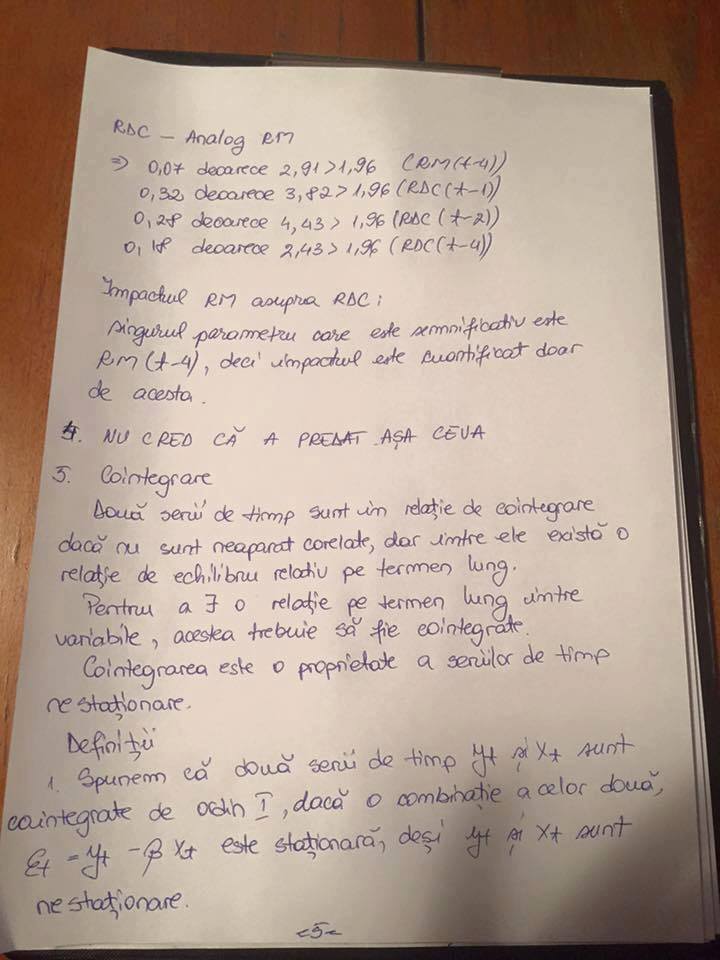 RDC – Analog RM
⇒ 0,07 deoarece 2,91>1,96 (RM(t-4))
0,32 deoarece 3,82>1,96 (RDC(t-1))
0,28 deoarece 4,43>1,96 (RDC(t-2))
0,18 deoarece 2,43>1,96 (RDC(t-4))
Impactul RM asupra RDC:
singurul parametru care este semnificativ este
RM(t-4), deci impactul este cuantificat doar
de acesta.
4. NU CRED CĂ A PREDAT AȘA CEVA
5. Cointegrare
Două serii de timp sunt în relație de cointegrare
dacă nu sunt neapărat corelate, dar între ele există o
relație de echilibru relativ pe termen lung.
Pentru a ∃ o relație pe termen lung între
variabile, acestea trebuie să fie cointegrate.
Cointegrarea este o proprietate a seriilor de timp
nestaționare.
Definiții
1. Spunem că două serii de timp yt și xt sunt
cointegrate de ordin I, dacă o combinație a celor două,
Ɛt = yt - β xt este staționară, deși yt și xt sunt
nestaționare.
-5-